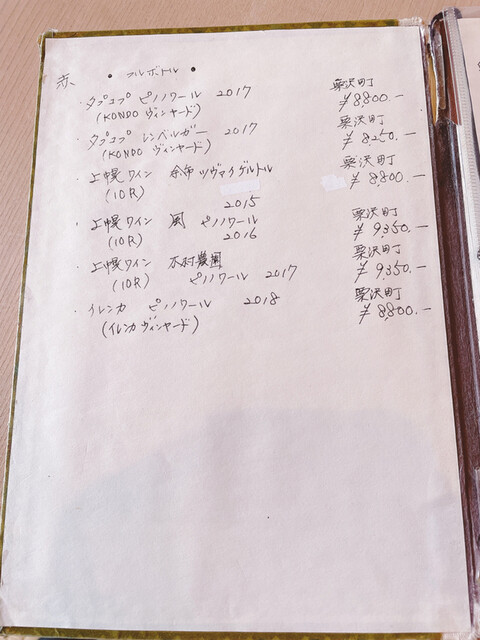 赤、 • フルボトル •
・タプコプ ピノノワール 2017 栗沢町
(KONDO ヴィンヤード) ¥8800.-
・タプコプ レンベルガー 2017 栗沢町
(KONDO ヴィンヤード) ¥8,250.-
・上幌ワイン 余市 ツヴァイゲルトル 栗沢町
(10R) ¥8,800.-
2015
・上幌ワイン 風 ピノノワール 栗沢町
(10R) 2016 ¥9,350.-
・上幌ワイン 木村農園 栗沢町
(10R) ピノノワール 2017 ¥9350.-
・イレンカ ピノノワール 2018 栗沢町
(イレンカ ヴィンヤード) ¥8,800.-